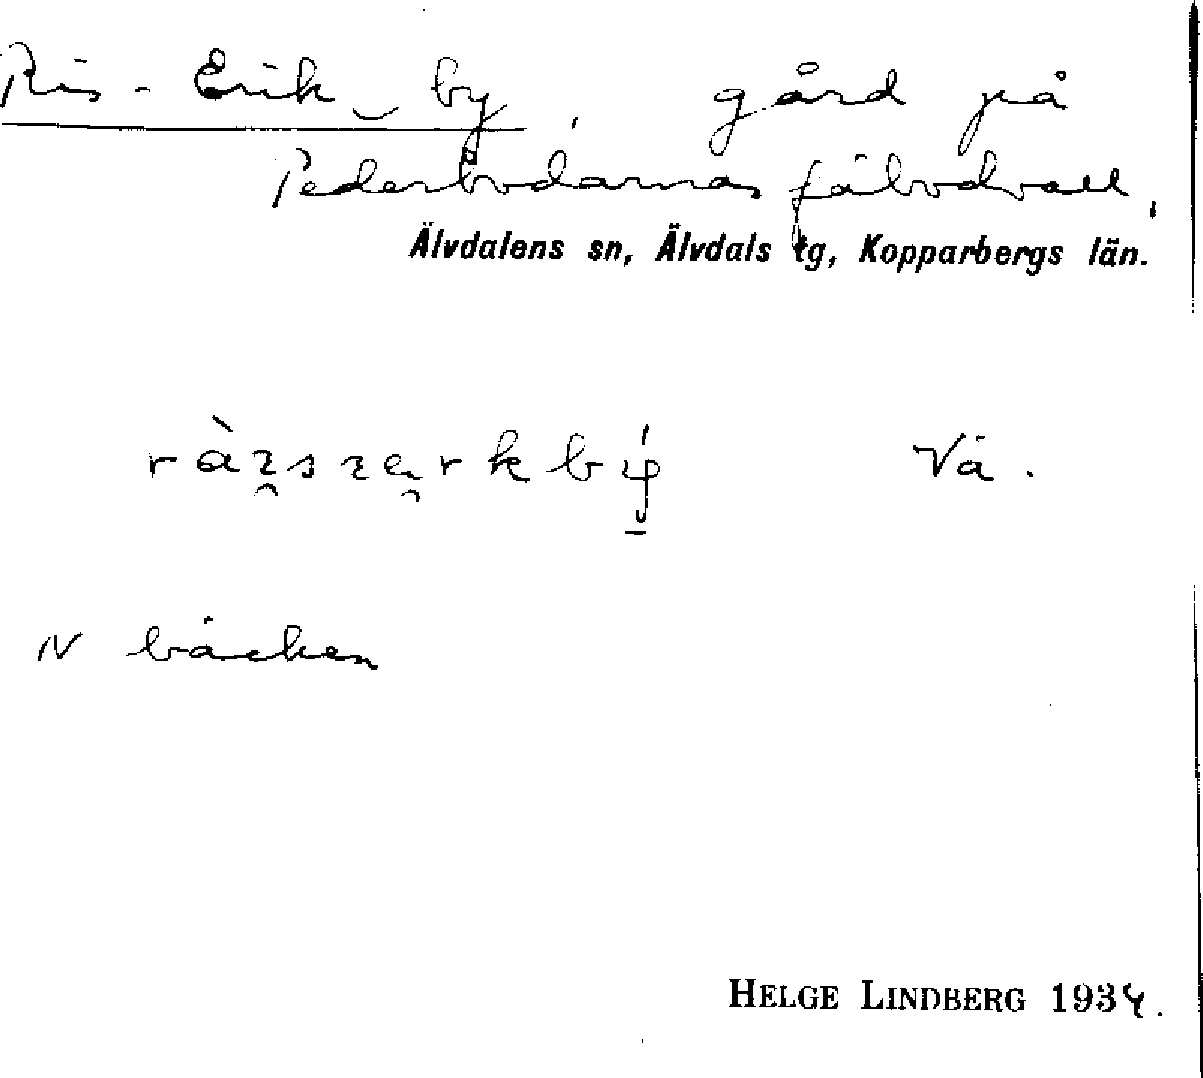 Ris-Erik_by, gård på
Pederbodarnas fäbodvall,
Älvdalens sn, Älvdals tg, Kopparbergs län.
Vä.
N bäcken
HELGE LINDBERG 1934.